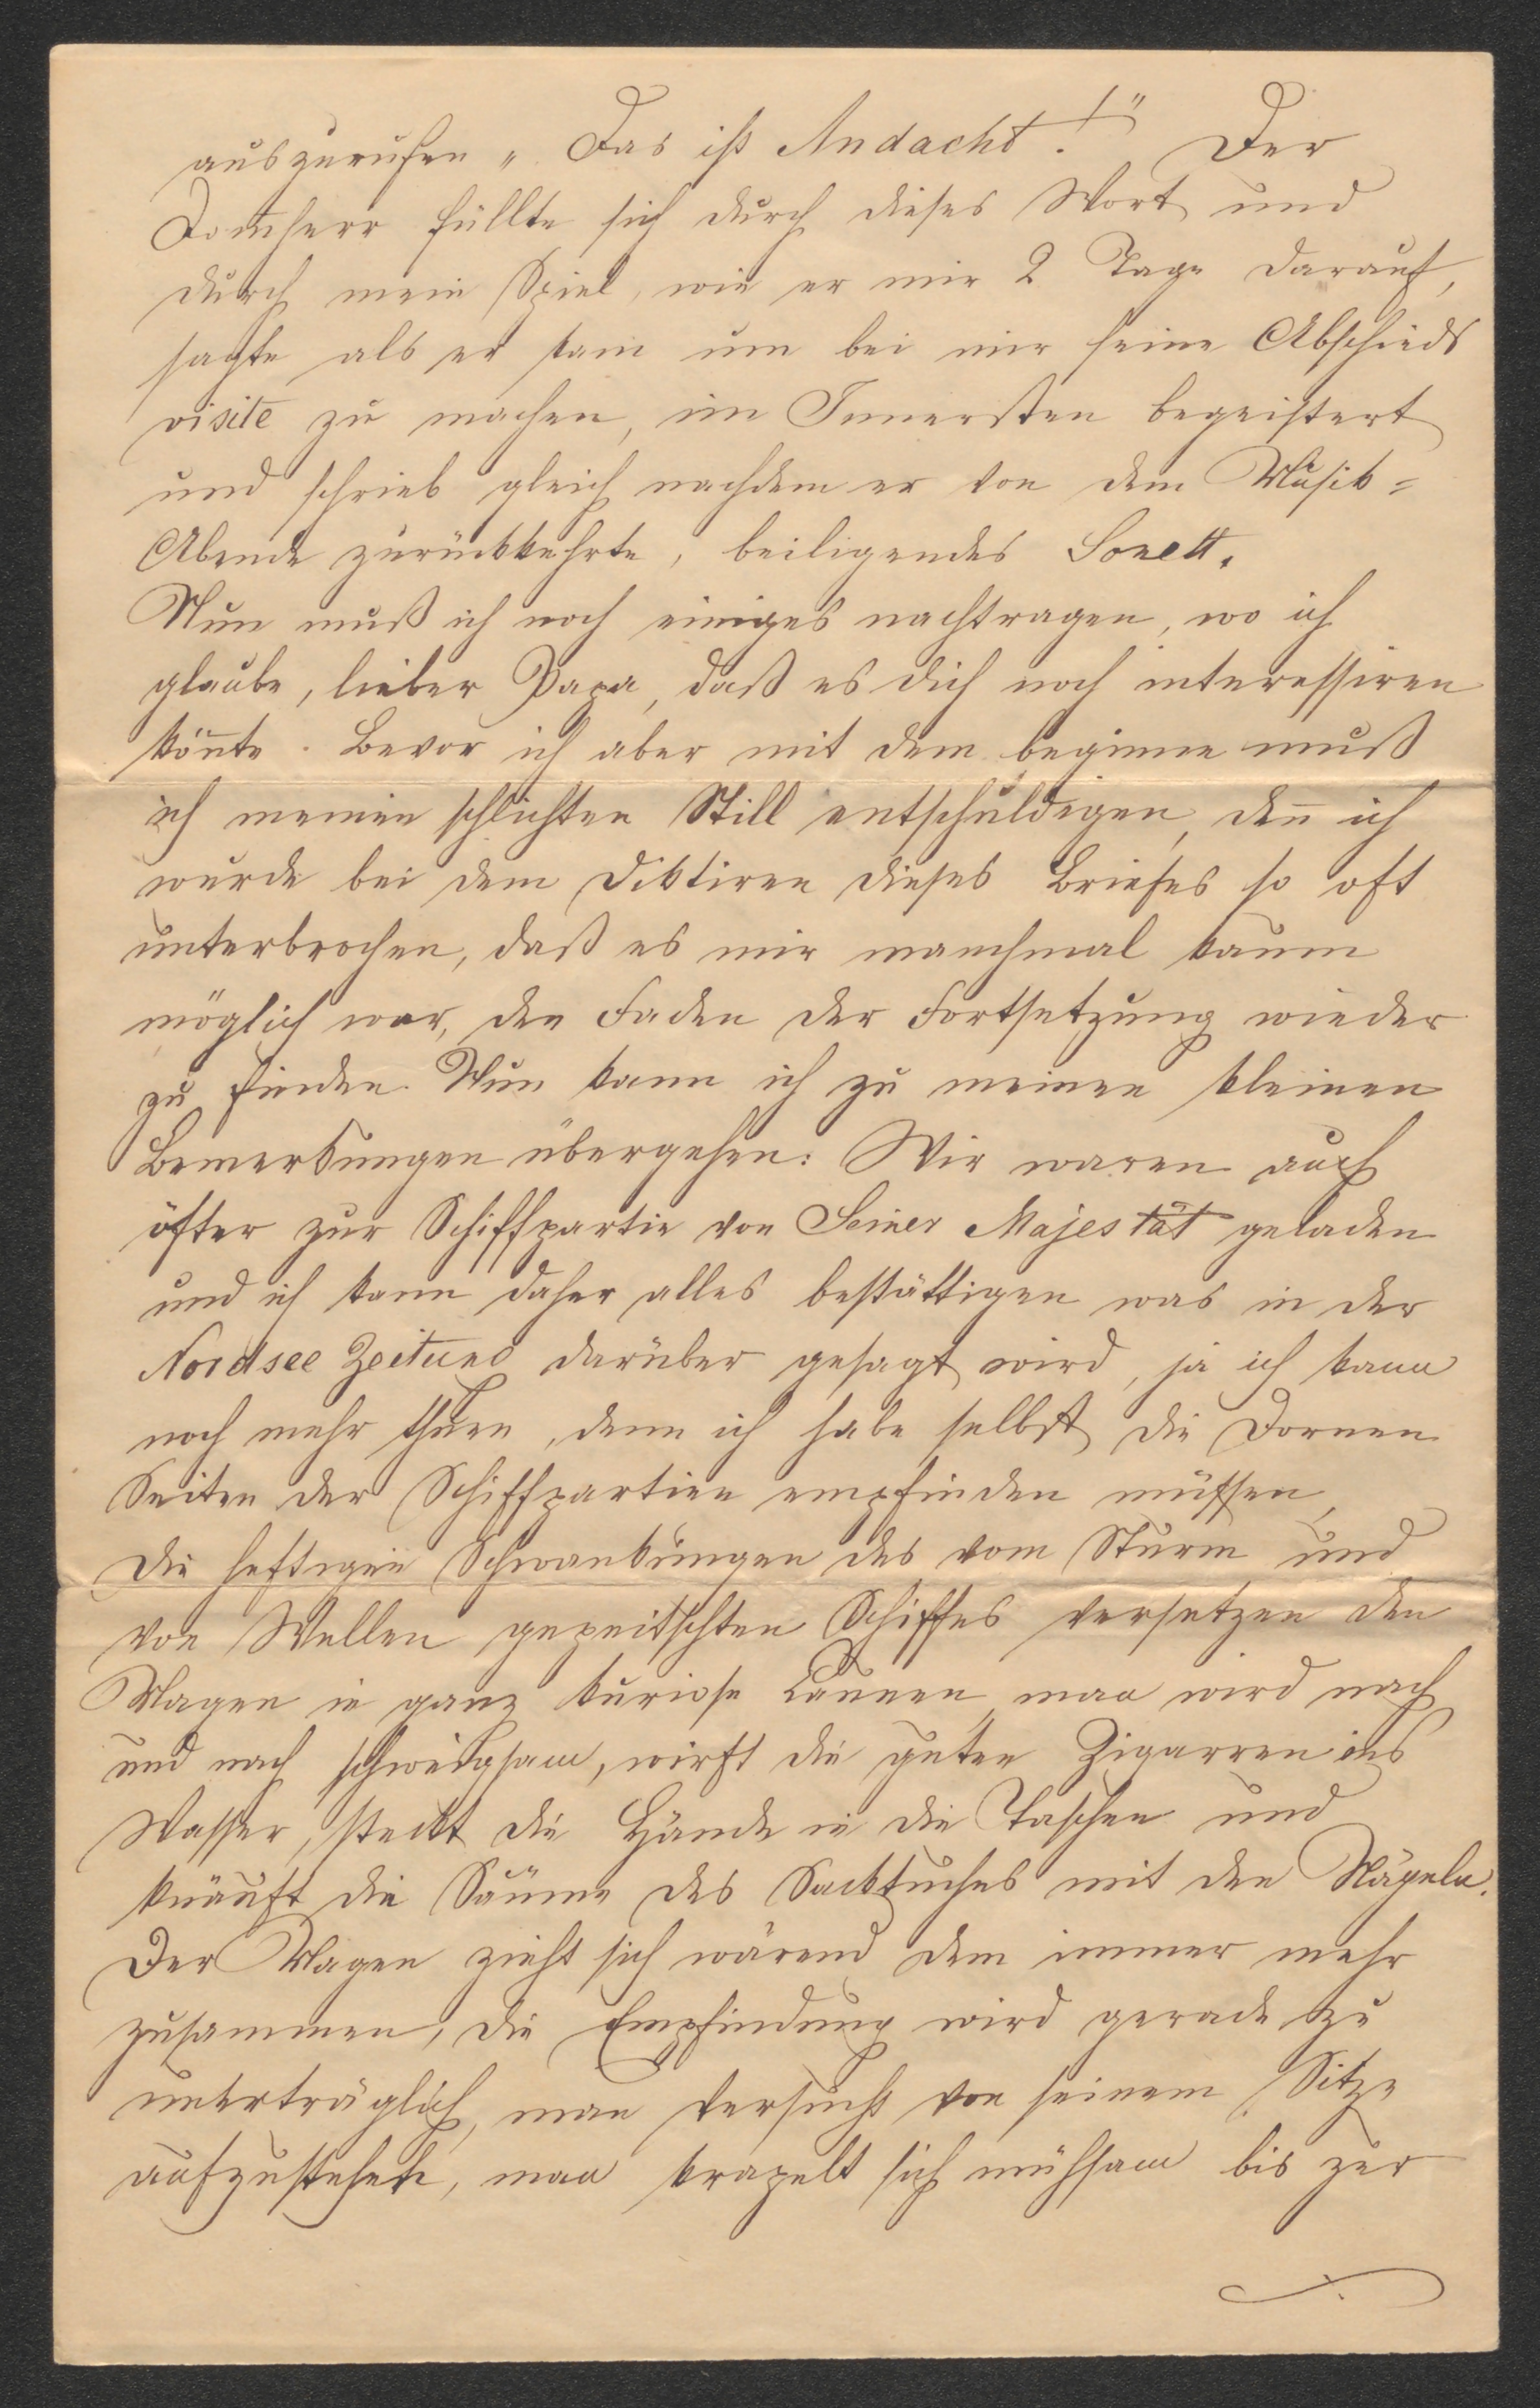 auszurufen „Das ist Andacht!" Der
Domherr füllte sich durch dieses Wort und
durch mein Spiel, wie er mir 2 Tage darauf,
sagte als er kam um bei mir seine Abschieds
visite zu machen, im Innersten begeistert
und schrieb gleich nachdem er von dem Musik=
Abende zurückkehrte, beiligendes Sonett.
Nun muß ich noch einiges nachtragen, wo ich
glaube, lieber Papa, daß es dich noch interessiren
kön̄te. Bevor ich aber mit dem beginne muß
ich meinen schlichten Still entschuldigen, den̄ ich
wurde bei dem Diktiren dieses Briefes so oft
unterbrochen, daß es mir manchmal kaum
möglich war, den Faden der Fortsetzung wieder
zu finden. Nun kann ich zu meinen kleinen
Bemerkungen übergehen: Wir waren auch
öfter zur Schiffpartie von Seiner Majestät geladen
und ich kann daher alles bestättigen was in der
Nordsee Zeitund darüber gesagt wird, ja ich kann
noch mehr thuen, denn ich habe selbst die Dornen
Seiten der Schiffpartien empfinden müssen,
die heftigen Schwankungen des vom Sturm und
von Wellen gepeitschten Schiffes versetzen den
Magen in ganz kuriose Launen, man wird nach
und nach schweigsam, wirft die guten Zigarren ins
Wasser, steckt die Hände in die Taschen und
knäuft die Säume des Sacktuches mit den Nägeln.
Der Magen zieht sich wärend dem immer mehr
zusammen, die Empfindung wird gerade zu
unerträglich, man versucht von seinem Sitze
aufzustehen, man krapelt sich mühsam bis zur